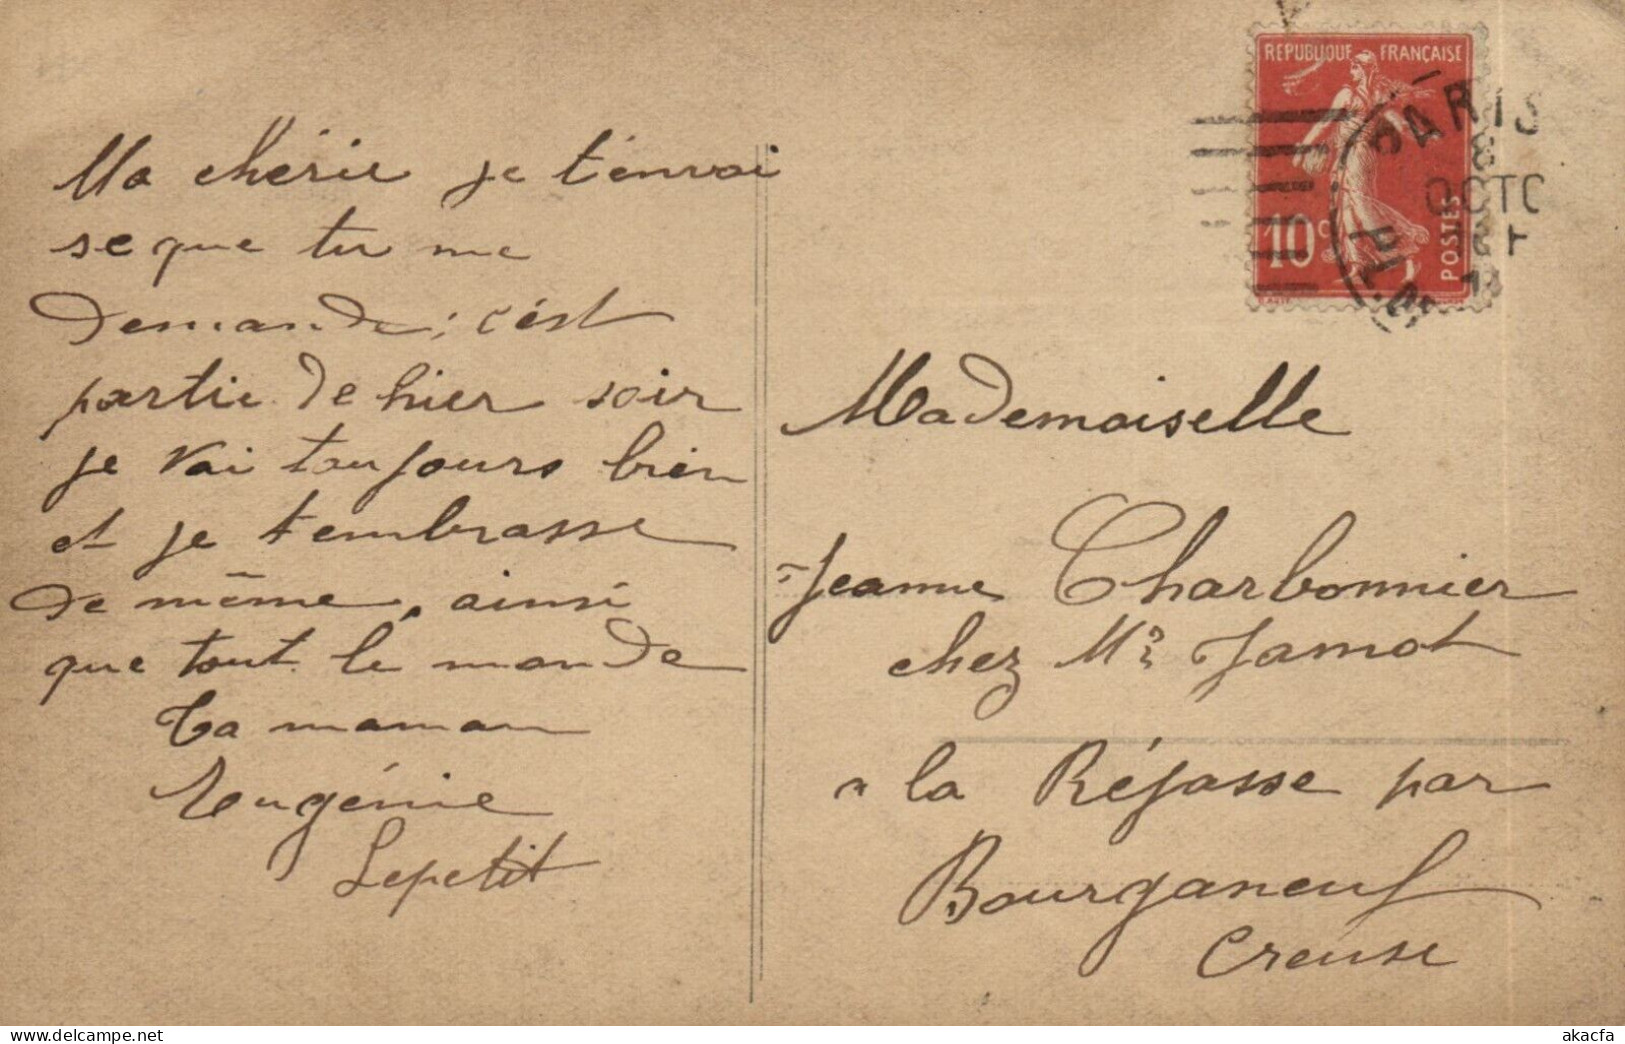 Ma chérie je t'envoi
se que tu me
demande; c'est
partie de hier soir
je vai toujours bien
et je t'embrasse
de même, ainsi
que tout le monde
Ta maman
Eugénie
Lepetit
RÉPUBLIQUE FRANÇAISE
10c
POSTES
PARIS
OCTO
Mademoiselle
Jeanne Charbonnier
chez Mr Jamot
a la Réjasse par
Bourganeuf
Creuse
akacfa